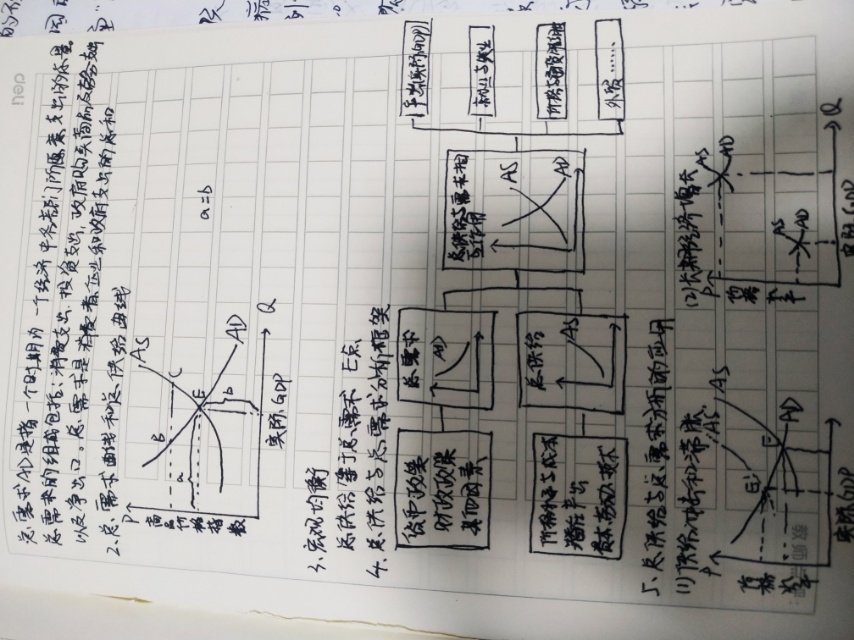 总需求AD是指一个时期内一个经济中各部门所愿意支出的总量
总需求的组成包括:消费支出、投资支出、政府购买商品及劳务支出
以及净出口。总需求是消费者、企业和政府支出的总和
2.总需求曲线和总供给曲线
P
商品价格指数
AS
B
C
a
E
b
AD
Q
实际GDP
a=b
3.宏观均衡
总供给等于总需求 E点
4.总供给与总需求分析框架
货币政策
财政政策
其他因素
总需求
AD
价格水平与成本
潜在产出
资本劳动技术
总供给
AS
总供给与总需求相互作用
AS
AD
产出(实际GDP)
就业与失业
价格与通货膨胀
外贸……
5.总供给与总需求分析的应用
(1)供给冲击和滞胀
P
价格水平
AS'
AS
E'
E
AD
实际GDP
(2)长期经济增长
P
价格水平
AS
AD
AS
AD
Q
实际GDP